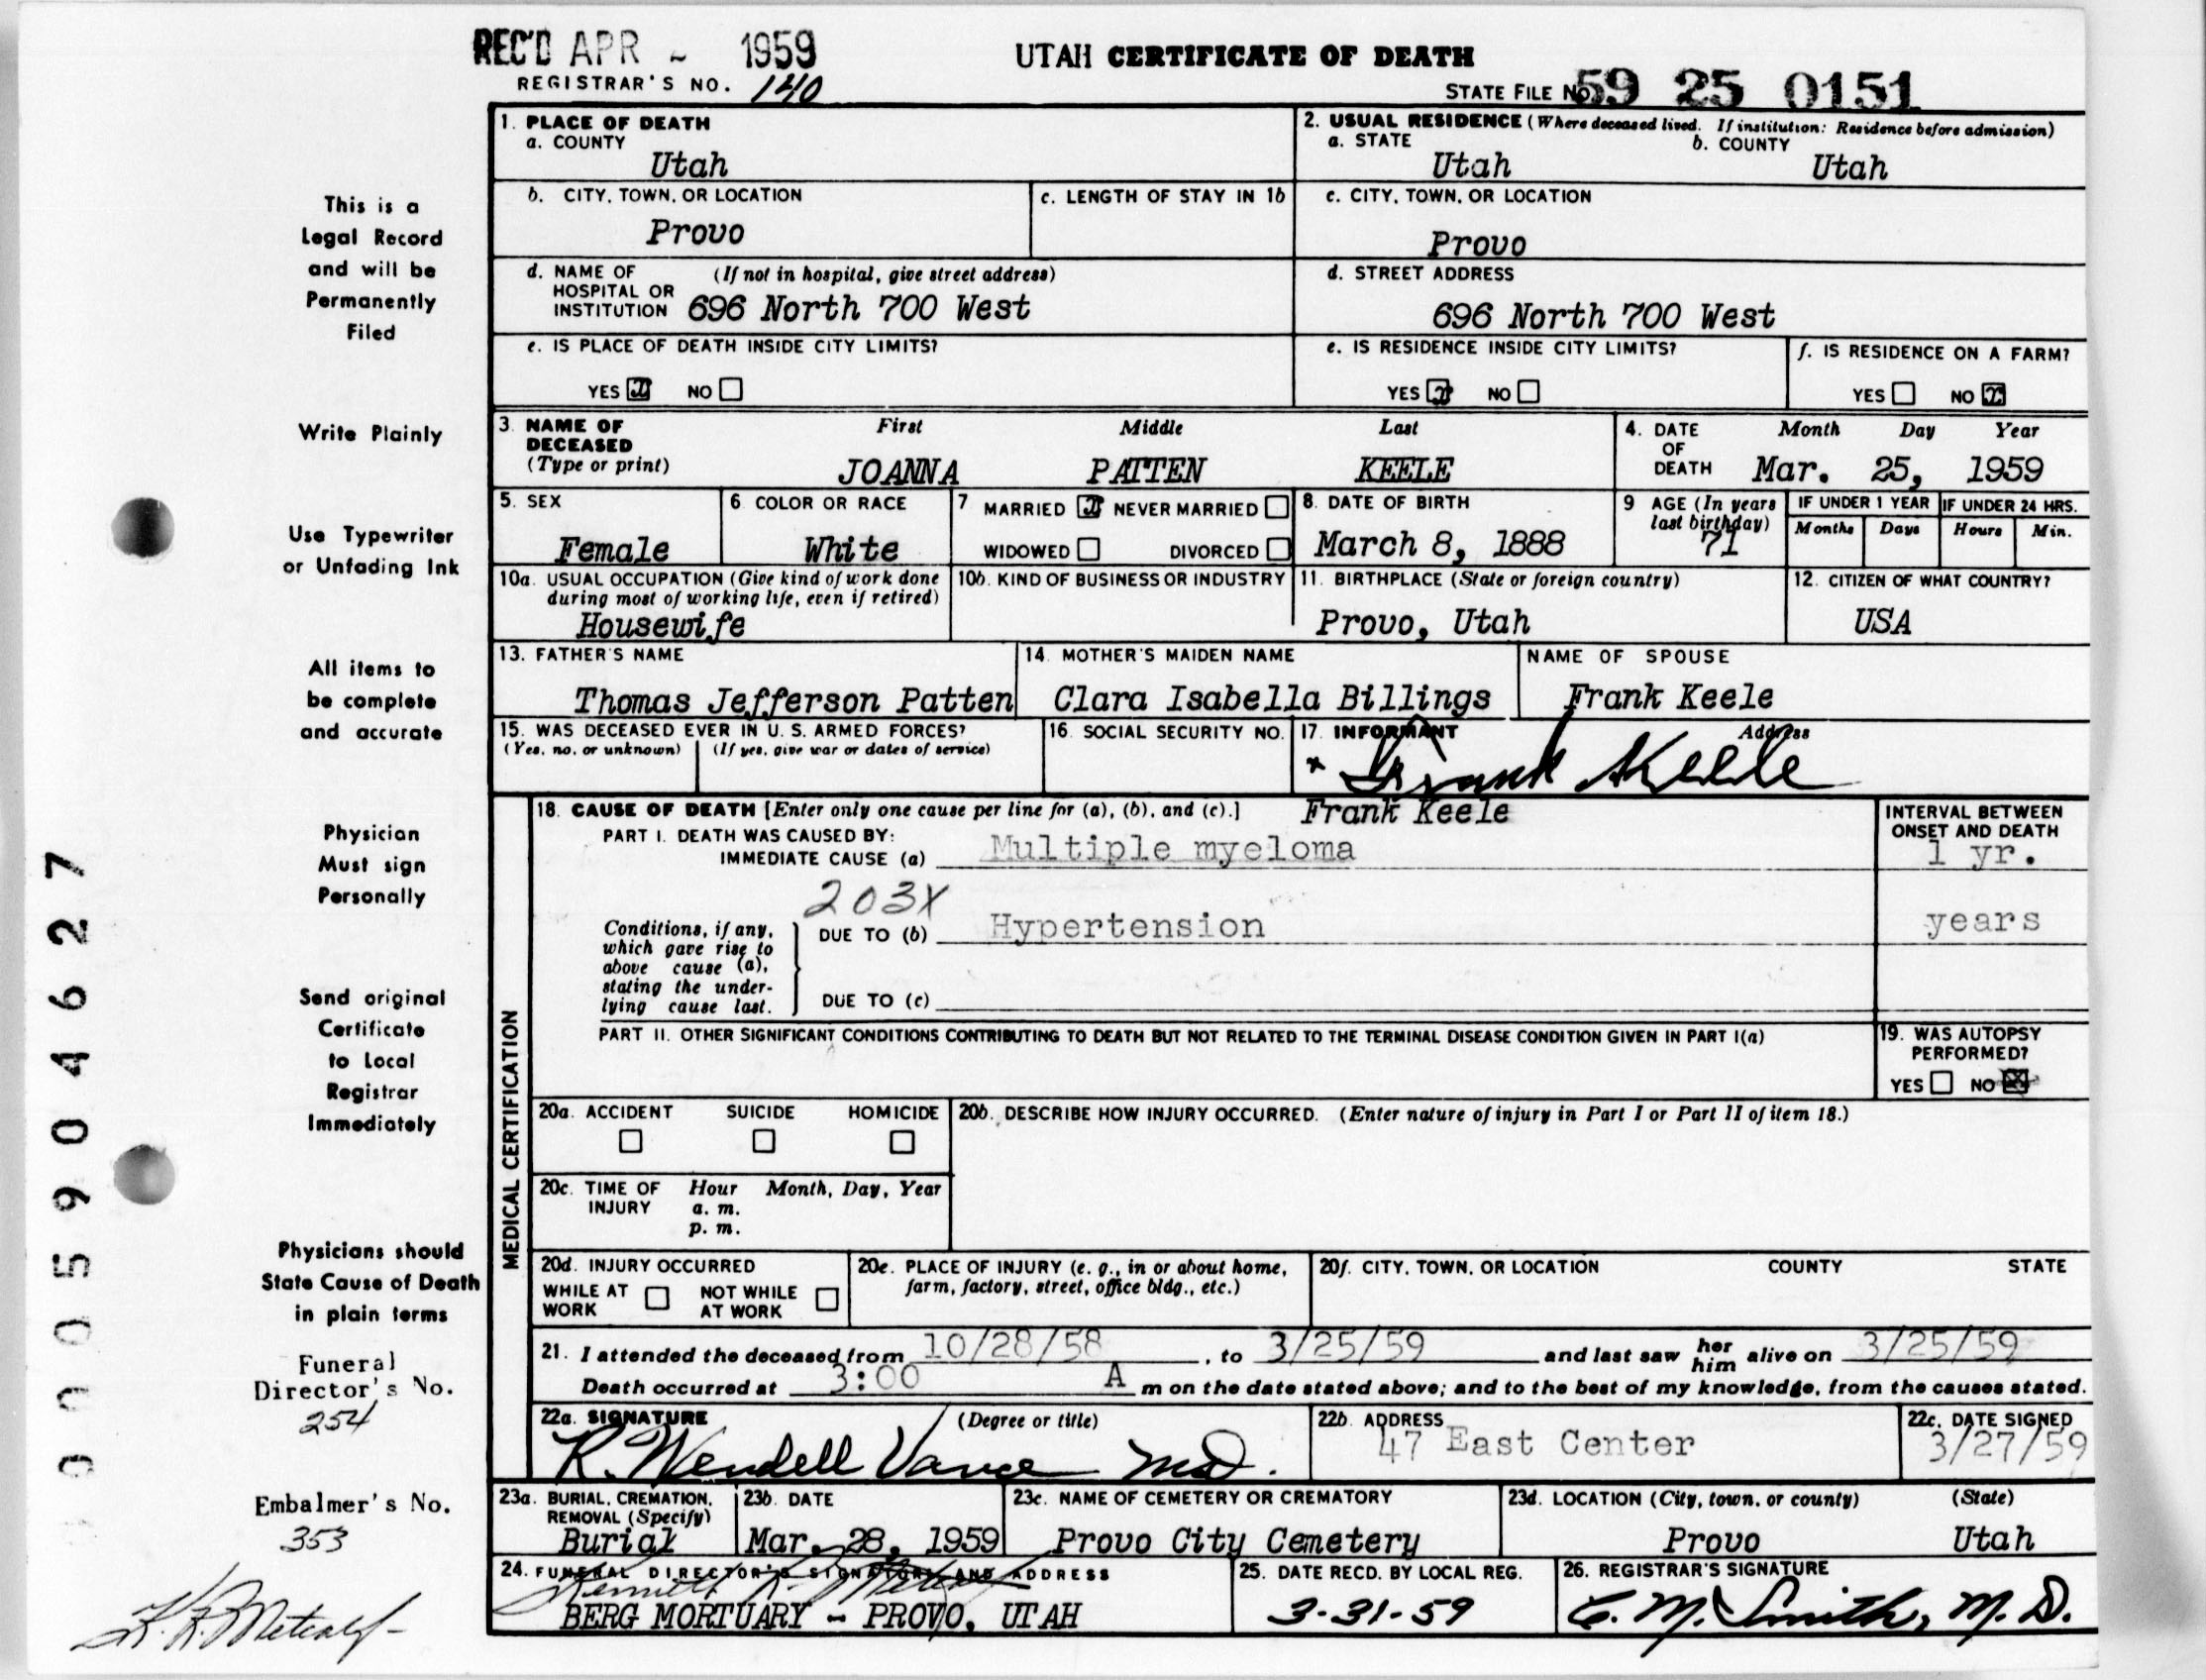 REC'D APR 1959
UTAH CERTIFICATE OF DEATH
REGISTRAR'S NO. 140
STATE FILE NO. 59 25 0151
1. PLACE OF DEATH
a. COUNTY
Utah
2. USUAL RESIDENCE (Where deceased lived. If institution: Residence before admission)
a. STATE b. COUNTY
Utah Utah
b. CITY, TOWN, OR LOCATION
Provo
c. LENGTH OF STAY IN 1b
c. CITY, TOWN, OR LOCATION
Provo
d. NAME OF (If not in hospital, give street address)
HOSPITAL OR
INSTITUTION 696 North 700 West
d. STREET ADDRESS
696 North 700 West
e. IS PLACE OF DEATH INSIDE CITY LIMITS?
YES X NO
e. IS RESIDENCE INSIDE CITY LIMITS?
YES X NO
f. IS RESIDENCE ON A FARM?
YES NO X
3. NAME OF DECEASED First Middle Last
(Type or print) JOANNA PATTEN KEELE
4. DATE OF DEATH Month Day Year
Mar. 25, 1959
5. SEX
Female
6 COLOR OR RACE
White
7 MARRIED X NEVER MARRIED
WIDOWED DIVORCED
8. DATE OF BIRTH
March 8, 1888
9 AGE (In years last birthday)
71
IF UNDER 1 YEAR IF UNDER 24 HRS.
Months Days Hours Min.
10a. USUAL OCCUPATION (Give kind of work done
during most of working life, even if retired)
Housewife
10b. KIND OF BUSINESS OR INDUSTRY
11. BIRTHPLACE (State or foreign country)
Provo, Utah
12. CITIZEN OF WHAT COUNTRY?
USA
13. FATHER'S NAME
Thomas Jefferson Patten
14. MOTHER'S MAIDEN NAME
Clara Isabella Billings
NAME OF SPOUSE
Frank Keele
15. WAS DECEASED EVER IN U. S. ARMED FORCES?
(Yes, no, or unknown) (If yes, give war or dates of service)
16. SOCIAL SECURITY NO.
17. INFORMANT Address
x Frank Keele
Frank Keele
MEDICAL CERTIFICATION
18. CAUSE OF DEATH [Enter only one cause per line for (a), (b), and (c).]
INTERVAL BETWEEN
ONSET AND DEATH
PART I. DEATH WAS CAUSED BY:
IMMEDIATE CAUSE (a) Multiple myeloma 1 yr.
203X
Conditions, if any,
which gave rise to
above cause (a),
stating the under-
lying cause last.
DUE TO (b) Hypertension years
DUE TO (c)
PART II. OTHER SIGNIFICANT CONDITIONS CONTRIBUTING TO DEATH BUT NOT RELATED TO THE TERMINAL DISEASE CONDITION GIVEN IN PART I(a)
19. WAS AUTOPSY
PERFORMED?
YES NO X
20a. ACCIDENT SUICIDE HOMICIDE
20b. DESCRIBE HOW INJURY OCCURRED. (Enter nature of injury in Part I or Part II of item 18.)
20c. TIME OF INJURY Hour Month, Day, Year
a. m.
p. m.
20d. INJURY OCCURRED
WHILE AT WORK NOT WHILE AT WORK
20e. PLACE OF INJURY (e. g., in or about home,
farm, factory, street, office bldg., etc.)
20f. CITY, TOWN, OR LOCATION COUNTY STATE
21. I attended the deceased from 10/28/58, to 3/25/59 and last saw her him alive on 3/25/59
Death occurred at 3:00 A m on the date stated above; and to the best of my knowledge, from the causes stated.
22a. SIGNATURE (Degree or title)
R. Wendell Vance M.D.
22b. ADDRESS
47 East Center
22c. DATE SIGNED
3/27/59
23a. BURIAL, CREMATION,
REMOVAL (Specify)
Burial
23b. DATE
Mar. 28, 1959
23c. NAME OF CEMETERY OR CREMATORY
Provo City Cemetery
23d. LOCATION (City, town, or county) (State)
Provo Utah
24. FUNERAL DIRECTOR'S SIGNATORY AND ADDRESS
BERG MORTUARY - PROVO, UTAH
25. DATE RECD. BY LOCAL REG.
3-31-59
26. REGISTRAR'S SIGNATURE
C. M. Smith, M. D.
This is a
Legal Record
and will be
Permanently
Filed
Write Plainly
Use Typewriter
or Unfading Ink
All items to
be complete
and accurate
Physician
Must sign
Personally
Send original
Certificate
to Local
Registrar
Immediately
Physicians should
State Cause of Death
in plain terms
Funeral
Director's No.
254
Embalmer's No.
353
K. R. Metcalf
0005904627